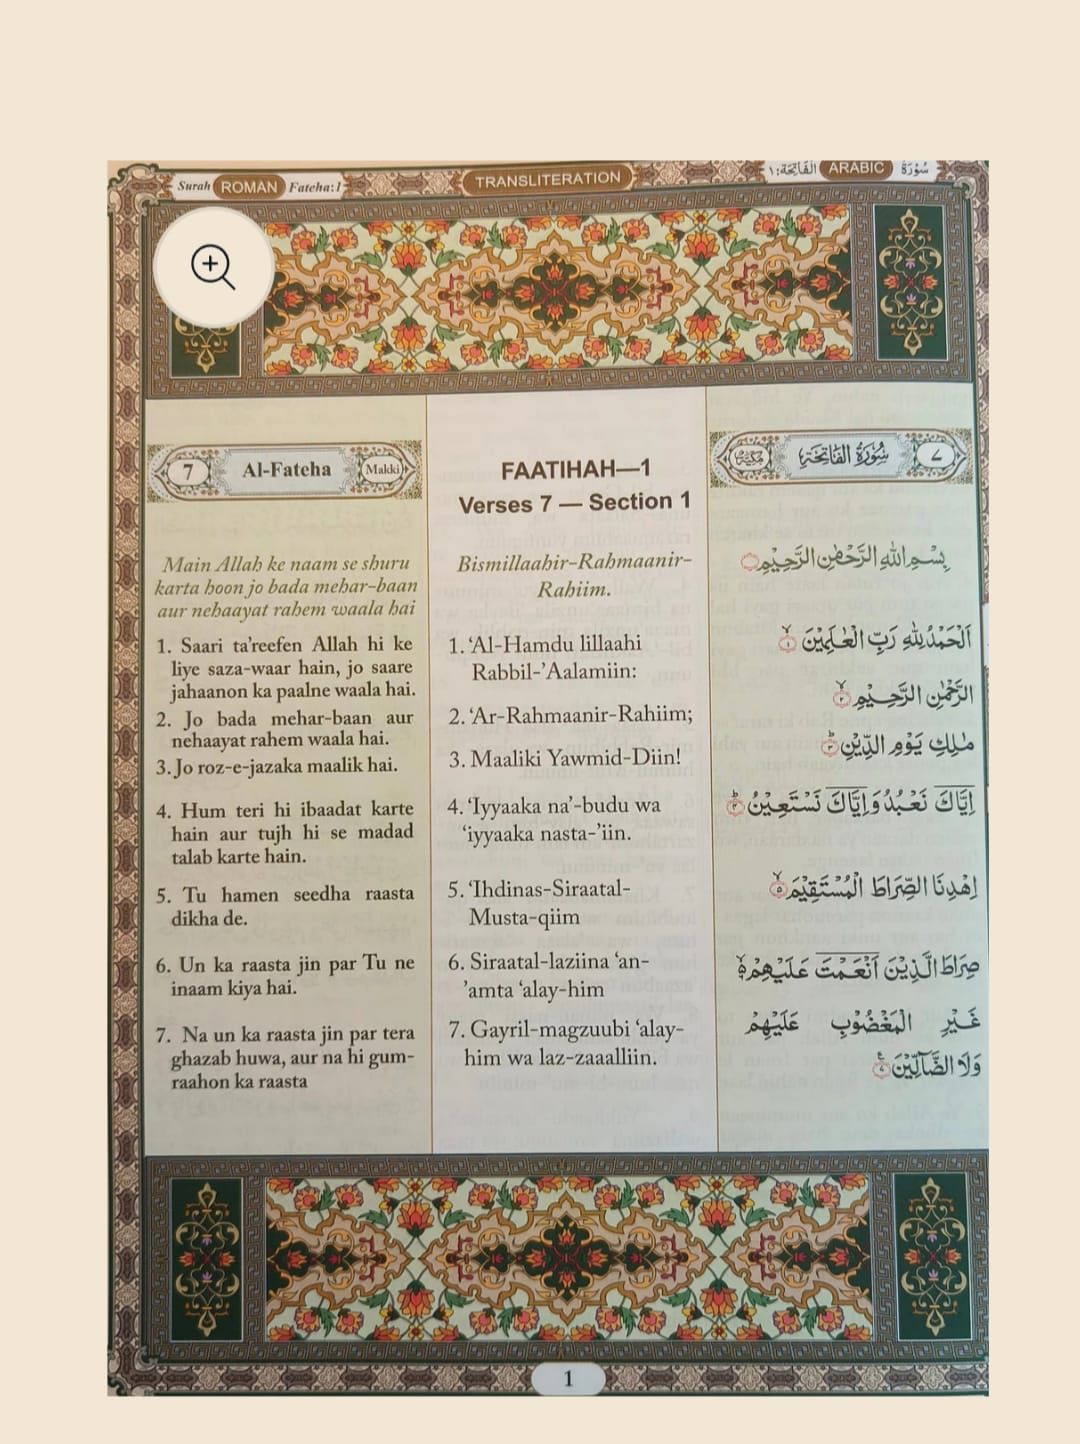 Surah ROMAN Fateha:1
TRANSLITERATION
الْفَاتِحَة:١ ARABIC سُوْرَةُ
7 Al-Fateha Makki
Main Allah ke naam se shuru
karta hoon jo bada mehar-baan
aur nehaayat rahem waala hai
1. Saari ta'reefen Allah hi ke
liye saza-waar hain, jo saare
jahaanon ka paalne waala hai.
2. Jo bada mehar-baan aur
nehaayat rahem waala hai.
3. Jo roz-e-jazaka maalik hai.
4. Hum teri hi ibaadat karte
hain aur tujh hi se madad
talab karte hain.
5. Tu hamen seedha raasta
dikha de.
6. Un ka raasta jin par Tu ne
inaam kiya hai.
7. Na un ka raasta jin par tera
ghazab huwa, aur na hi gum-
raahon ka raasta
FAATIHAH—1
Verses 7 — Section 1
Bismillaahir-Rahmaanir-
Rahiim.
1. ‘Al-Hamdu lillaahi
Rabbil-’Aalamiin:
2. ‘Ar-Rahmaanir-Rahiim;
3. Maaliki Yawmid-Diin!
4. ‘Iyyaaka na’-budu wa
‘iyyaaka nasta-’iin.
5. ‘Ihdinas-Siraatal-
Musta-qiim
6. Siraatal-laziina ‘an-
’amta ‘alay-him
7. Gayril-magzuubi ‘alay-
him wa laz-zaaalliin.
٧ سُوْرَةُ الْفَاتِحَةِ مَكِّيَّة
بِسْمِ اللهِ الرَّحْمٰنِ الرَّحِيْمِ
اَلْحَمْدُ لِلّٰهِ رَبِّ الْعٰلَمِيْنَ ۙ ١
الرَّحْمٰنِ الرَّحِيْمِ ۙ ٢
مٰلِكِ يَوْمِ الدِّيْنِ ؕ ٣
اِيَّاكَ نَعْبُدُ وَاِيَّاكَ نَسْتَعِيْنُ ؕ ٤
اِهْدِنَا الصِّرَاطَ الْمُسْتَقِيْمَ ۙ ٥
صِرَاطَ الَّذِيْنَ اَنْعَمْتَ عَلَيْهِمْ ۙ ٦
غَيْرِ الْمَغْضُوْبِ عَلَيْهِمْ
وَلَا الضَّآلِّيْنَ ٧
1